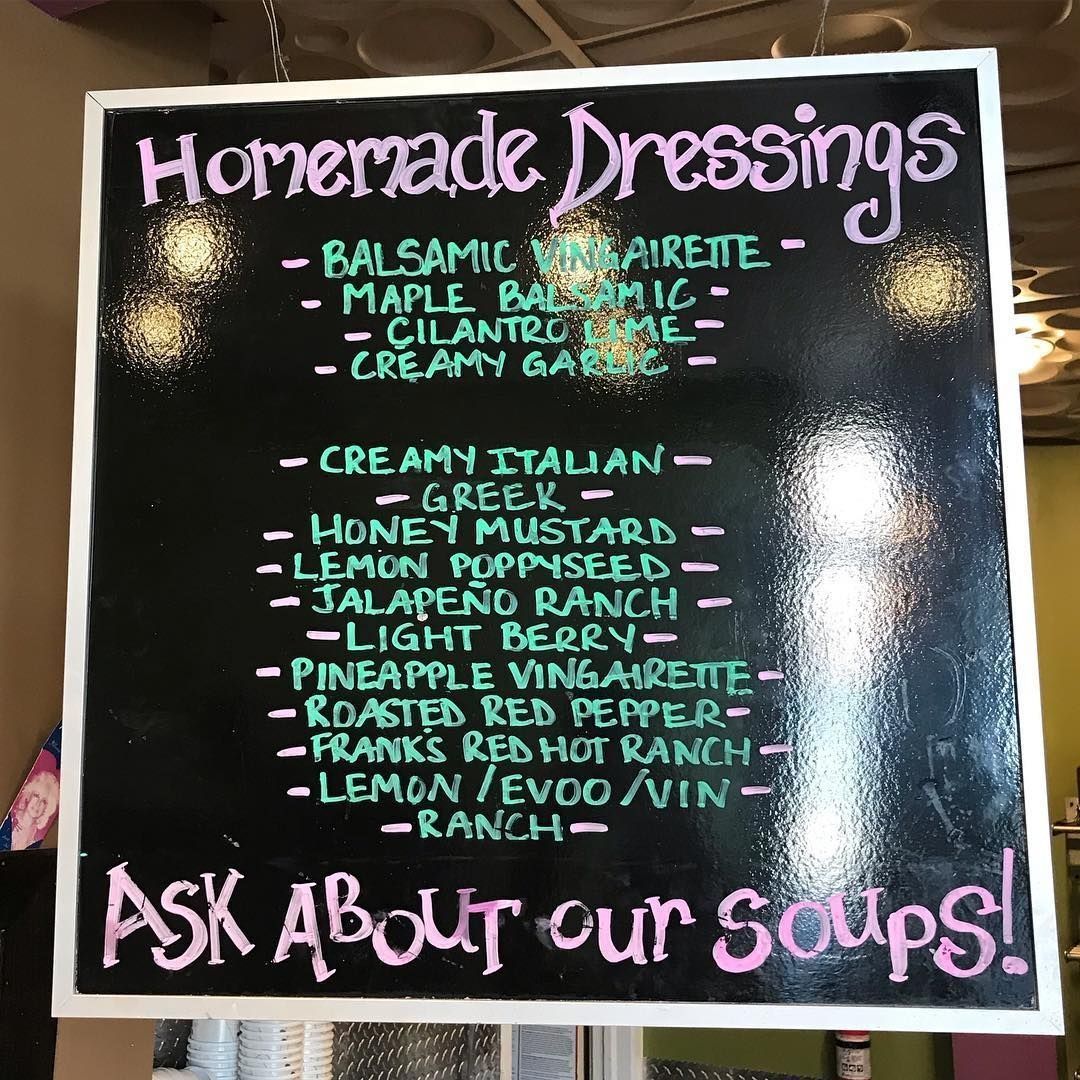 Homemade Dressings
- BALSAMIC VINGAIRETTE -
- MAPLE BALSAMIC -
- CILANTRO LIME -
- CREAMY GARLIC -
- CREAMY ITALIAN -
- GREEK -
- HONEY MUSTARD -
- LEMON POPPYSEED -
- JALAPEÑO RANCH -
- LIGHT BERRY -
- PINEAPPLE VINGAIRETTE -
- ROASTED RED PEPPER -
- FRANK'S RED HOT RANCH -
- LEMON / EVOO / VIN -
- RANCH -
ASK ABOUT our SOUPS!